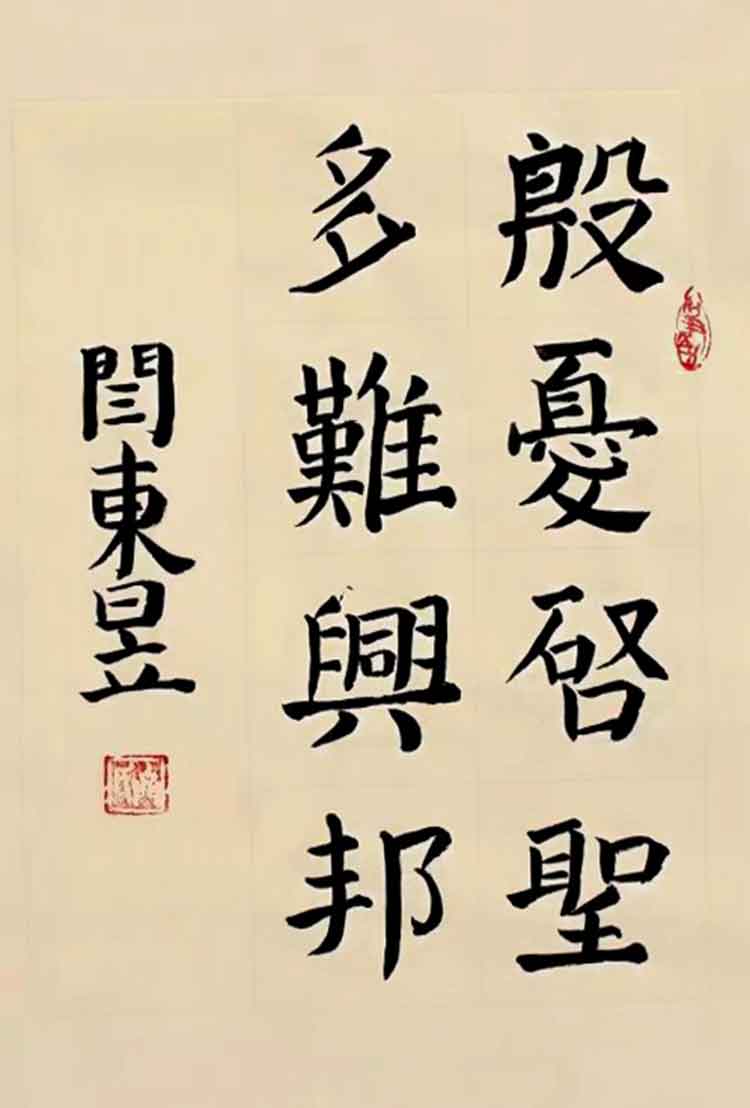 殷憂啓聖
多難興邦
閆東昱